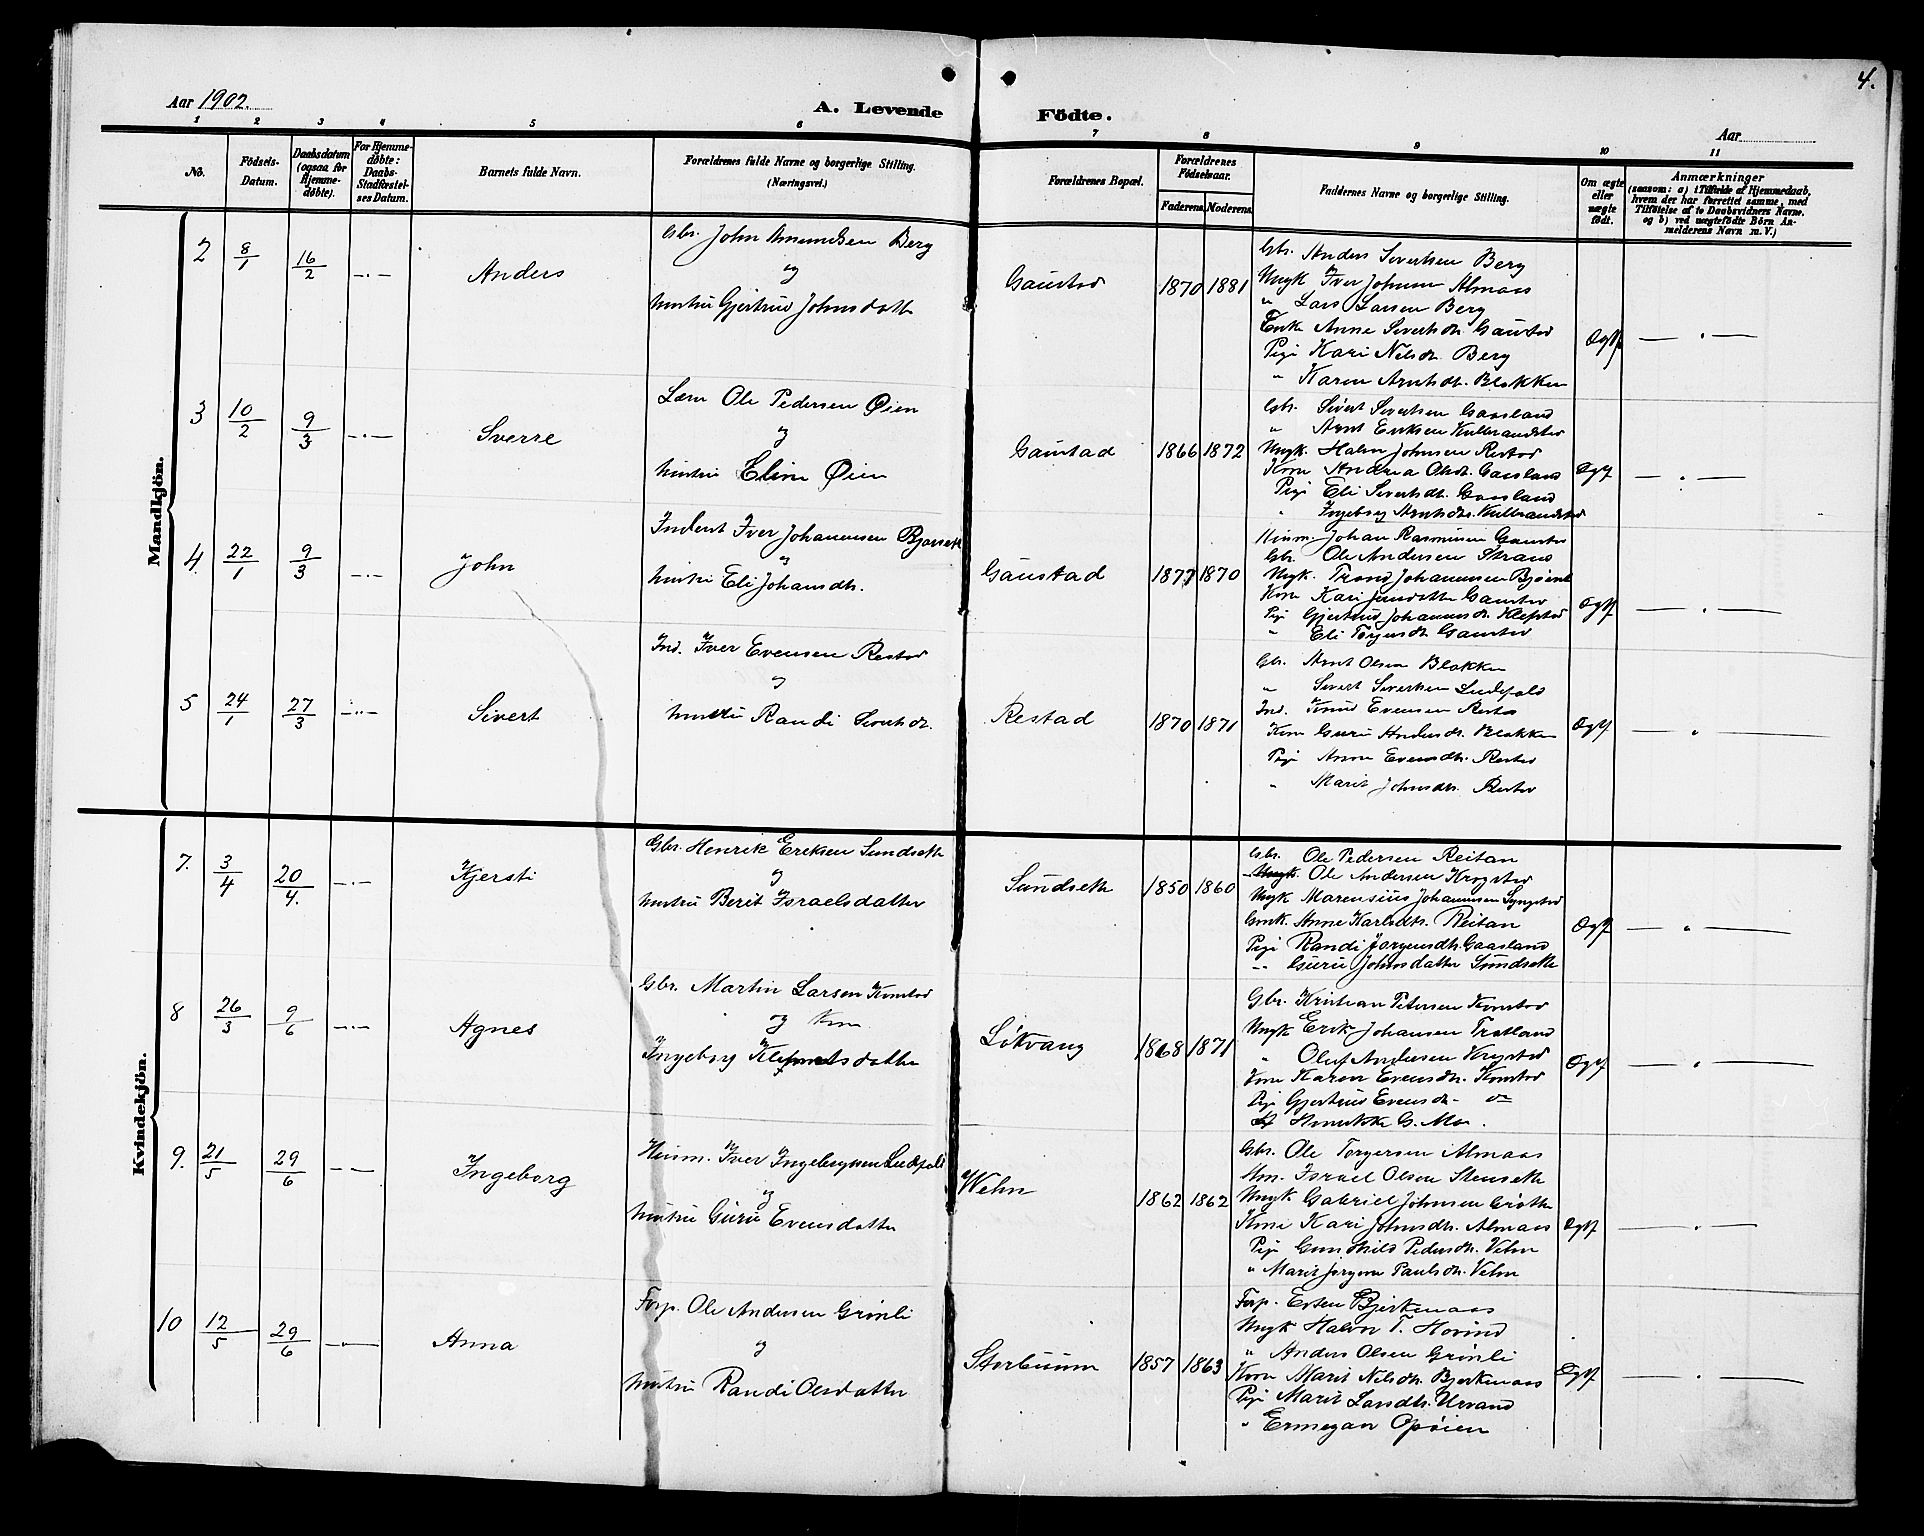 4.
Aar 1902.
A. Levende Födte.
Aar
1 2 3 4 5 6 7 8 9 10 11
No.
Födsels-Datum.
Daabsdatum (ogsaa for Hjemmedøbte).
For Hjemmedøbte: Daabs-Stadfæstelses Datum.
Barnets fulde Navn.
Forældrenes fulde Navne og borgerlige Stilling.
(Næringsvei.)
Forældrenes Bopæl.
Forældrenes Födselsaar.
Faderens. Moderens.
Faddernes Navne og borgerlige Stilling.
Om ægte eller uægte födt.
Anmærkninger
(saasom: a) i Tilfælde af Hjemmedaab, hvem der har forrettet samme, med Tilföielse af to Daabsvidners Navne, og b) ved uægtefödte Börn Anmelderens Navn m. V.)
Mandkjön.
2 8/1 16/2 -.- Anders
Gbr. John Amundsen Berg
og
Hustru Gjertrud Johnsdatter
Gaustad 1870 1881
Gbr. Anders Sivertsen Berg
Ungk Iver Johnsen Almaas
" Lars Larsen Berg
Enke Anne Sivertsdt. Gaustad
Pige Kari Nilsdt. Berg
" Karen Arntsdt. Blakken
Ægte
3 10/2 9/3 -.- Sverre
Lærer Ole Pedersen Øien
og
Hustru Eline Øien
Gaustad 1866 1872
Gbr. Sivert Sivertsen Gaasland
" Arnt Eriksen Kulbrandstad
Ungk. Halvor Johnsen Restad
Kone Andrea Olsdt. Gaasland
Pige Eli Sivertsdt. Gaasland
" Ingeborg Arntsdt. Kulbrandstad
Ægte
4. 22/1 9/3 -.- John
Inderst Iver Johannesen
og
Hustru Eli Johansdt.
Gaustad 1877 1870
Husm. Johan Rasmusen Gaustad
Gbr. Ole Andersen Strand
Ungk. Trond Johannesen
Kone Kari Jensdatter Gaustad
Pige Gjertrud Johannesdt. Klefstad
" Eli Torgersdt. Gaustad
Ægte
5 24/1 27/3 -.- Sivert
Ind. Iver Evensen Restad
og
Hustru Randi Sivertsdt.
Restad 1870 1871
Gbr. Arnt Olsen Blakken
" Sivert Sivertsen
Ind. Knud Evensen Restad
Kone Guru Andersdt. Blakken
Pige Anne Evensdt. Restad
" Marit Johnsdt. Restad
Ægte
Kvindekjön.
7. 3/4 20/4. -.- Kjersti
Gbr. Henrik Eriksen Sundseth
og
Hustru Berit Israelsdatter
Sundseth 1850 1860
Gbr. Ole Pedersen Reitan
Ungk. Ole Andersen Krogstad
Ungk Marensius Johannesen
Gmk. Anne Karlsdt. Reitan
Pige Randi Jørgensdt. Gaasland
" Guru Johnsdatter Sundseth
Ægte
8 26/3 9/6 -.- Agnes
Gbr. Martin Larsen Komstad
og Kone
Ingeborg Klemetsdatter
Løkvang 1868 1871
Gbr. Kristian Petersen Komstad
Ungk Erik Johansen Tratland
" Oluf Andersen Krogstad
Kone Karen Evensdt. Komstad
Pige Gjertrud Evensdt. do
Henrikke G. Mo.
Ægte
9. 21/5 29/6 -- Ingeborg
Husm. Iver Ingebrigtsen
og
Hustru Guru Evensdatter
Wehn 1862 1862
Gbr. Ole Torgersen Almaas
Hm. Israel Olsen Stenseth
Ungk. Gabriel Johnsen
Kone Kari Johnsdt. Almaas
Pige Gunhild Pedersdt. Vehn
" Marit Jørgine Paulsdt. Vehn
Ægte
10 12/5 29/6 -.- Anna
Forp. Ole Andersen Grönli
og
Hustru Randi Olsdatter
Storbuum 1857 1863
Forp. Esten Bjerkenaas
Ungk Halvor T. Hovind
" Anders Olsen Grönli
Kone Marit Nilsdt. Bjerkenaas
Pige Marit Larsdt.
" Ermegan Opöien
Ægte